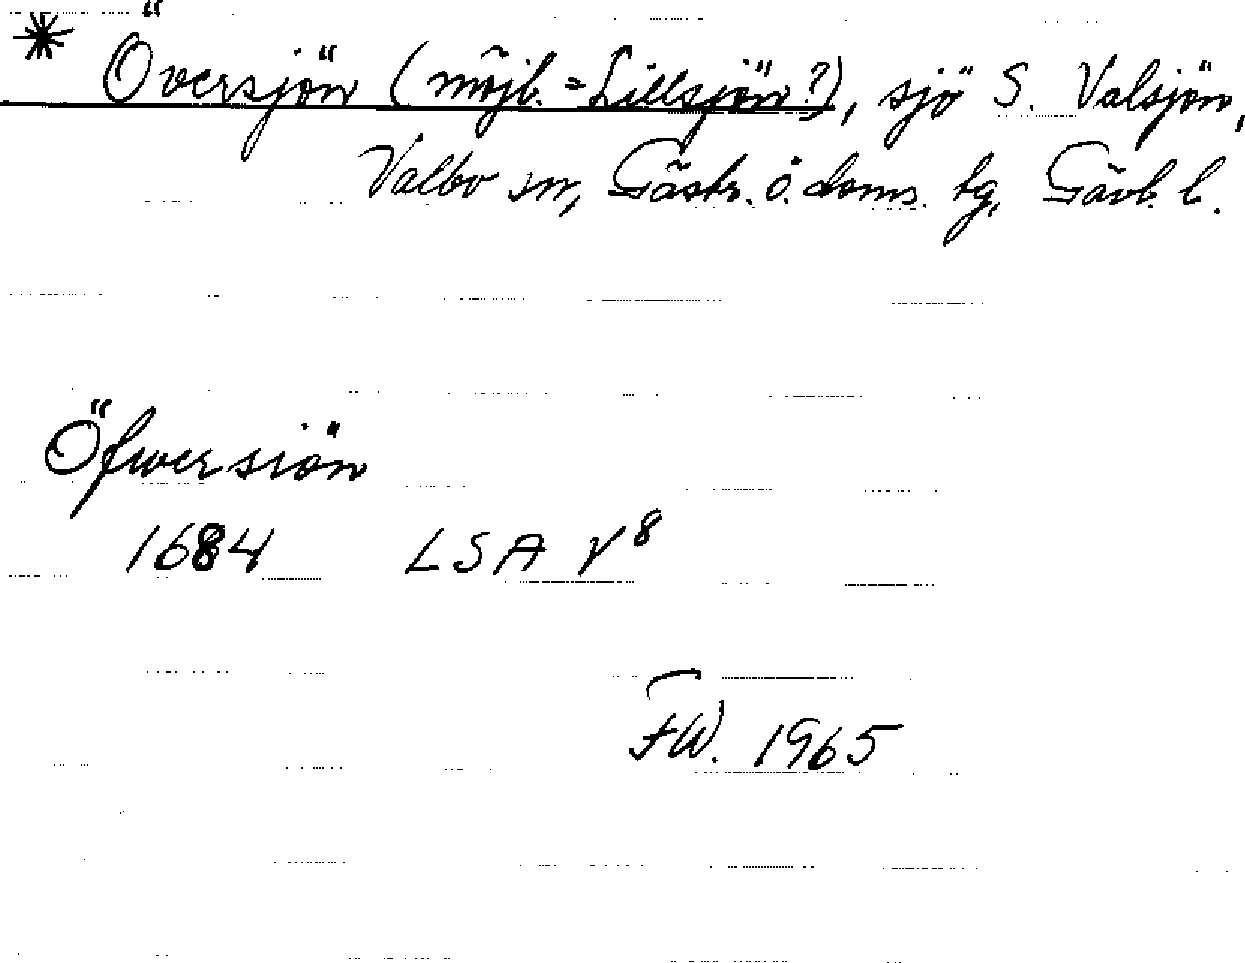 * Översjön (möjl. = Lillsjön?), sjö S. Valsjön,
Valbo sn, Gästr. ö. doms. tg, Gävl. l.
Öfwersiön
1684 LSA V⁸
FW. 1965